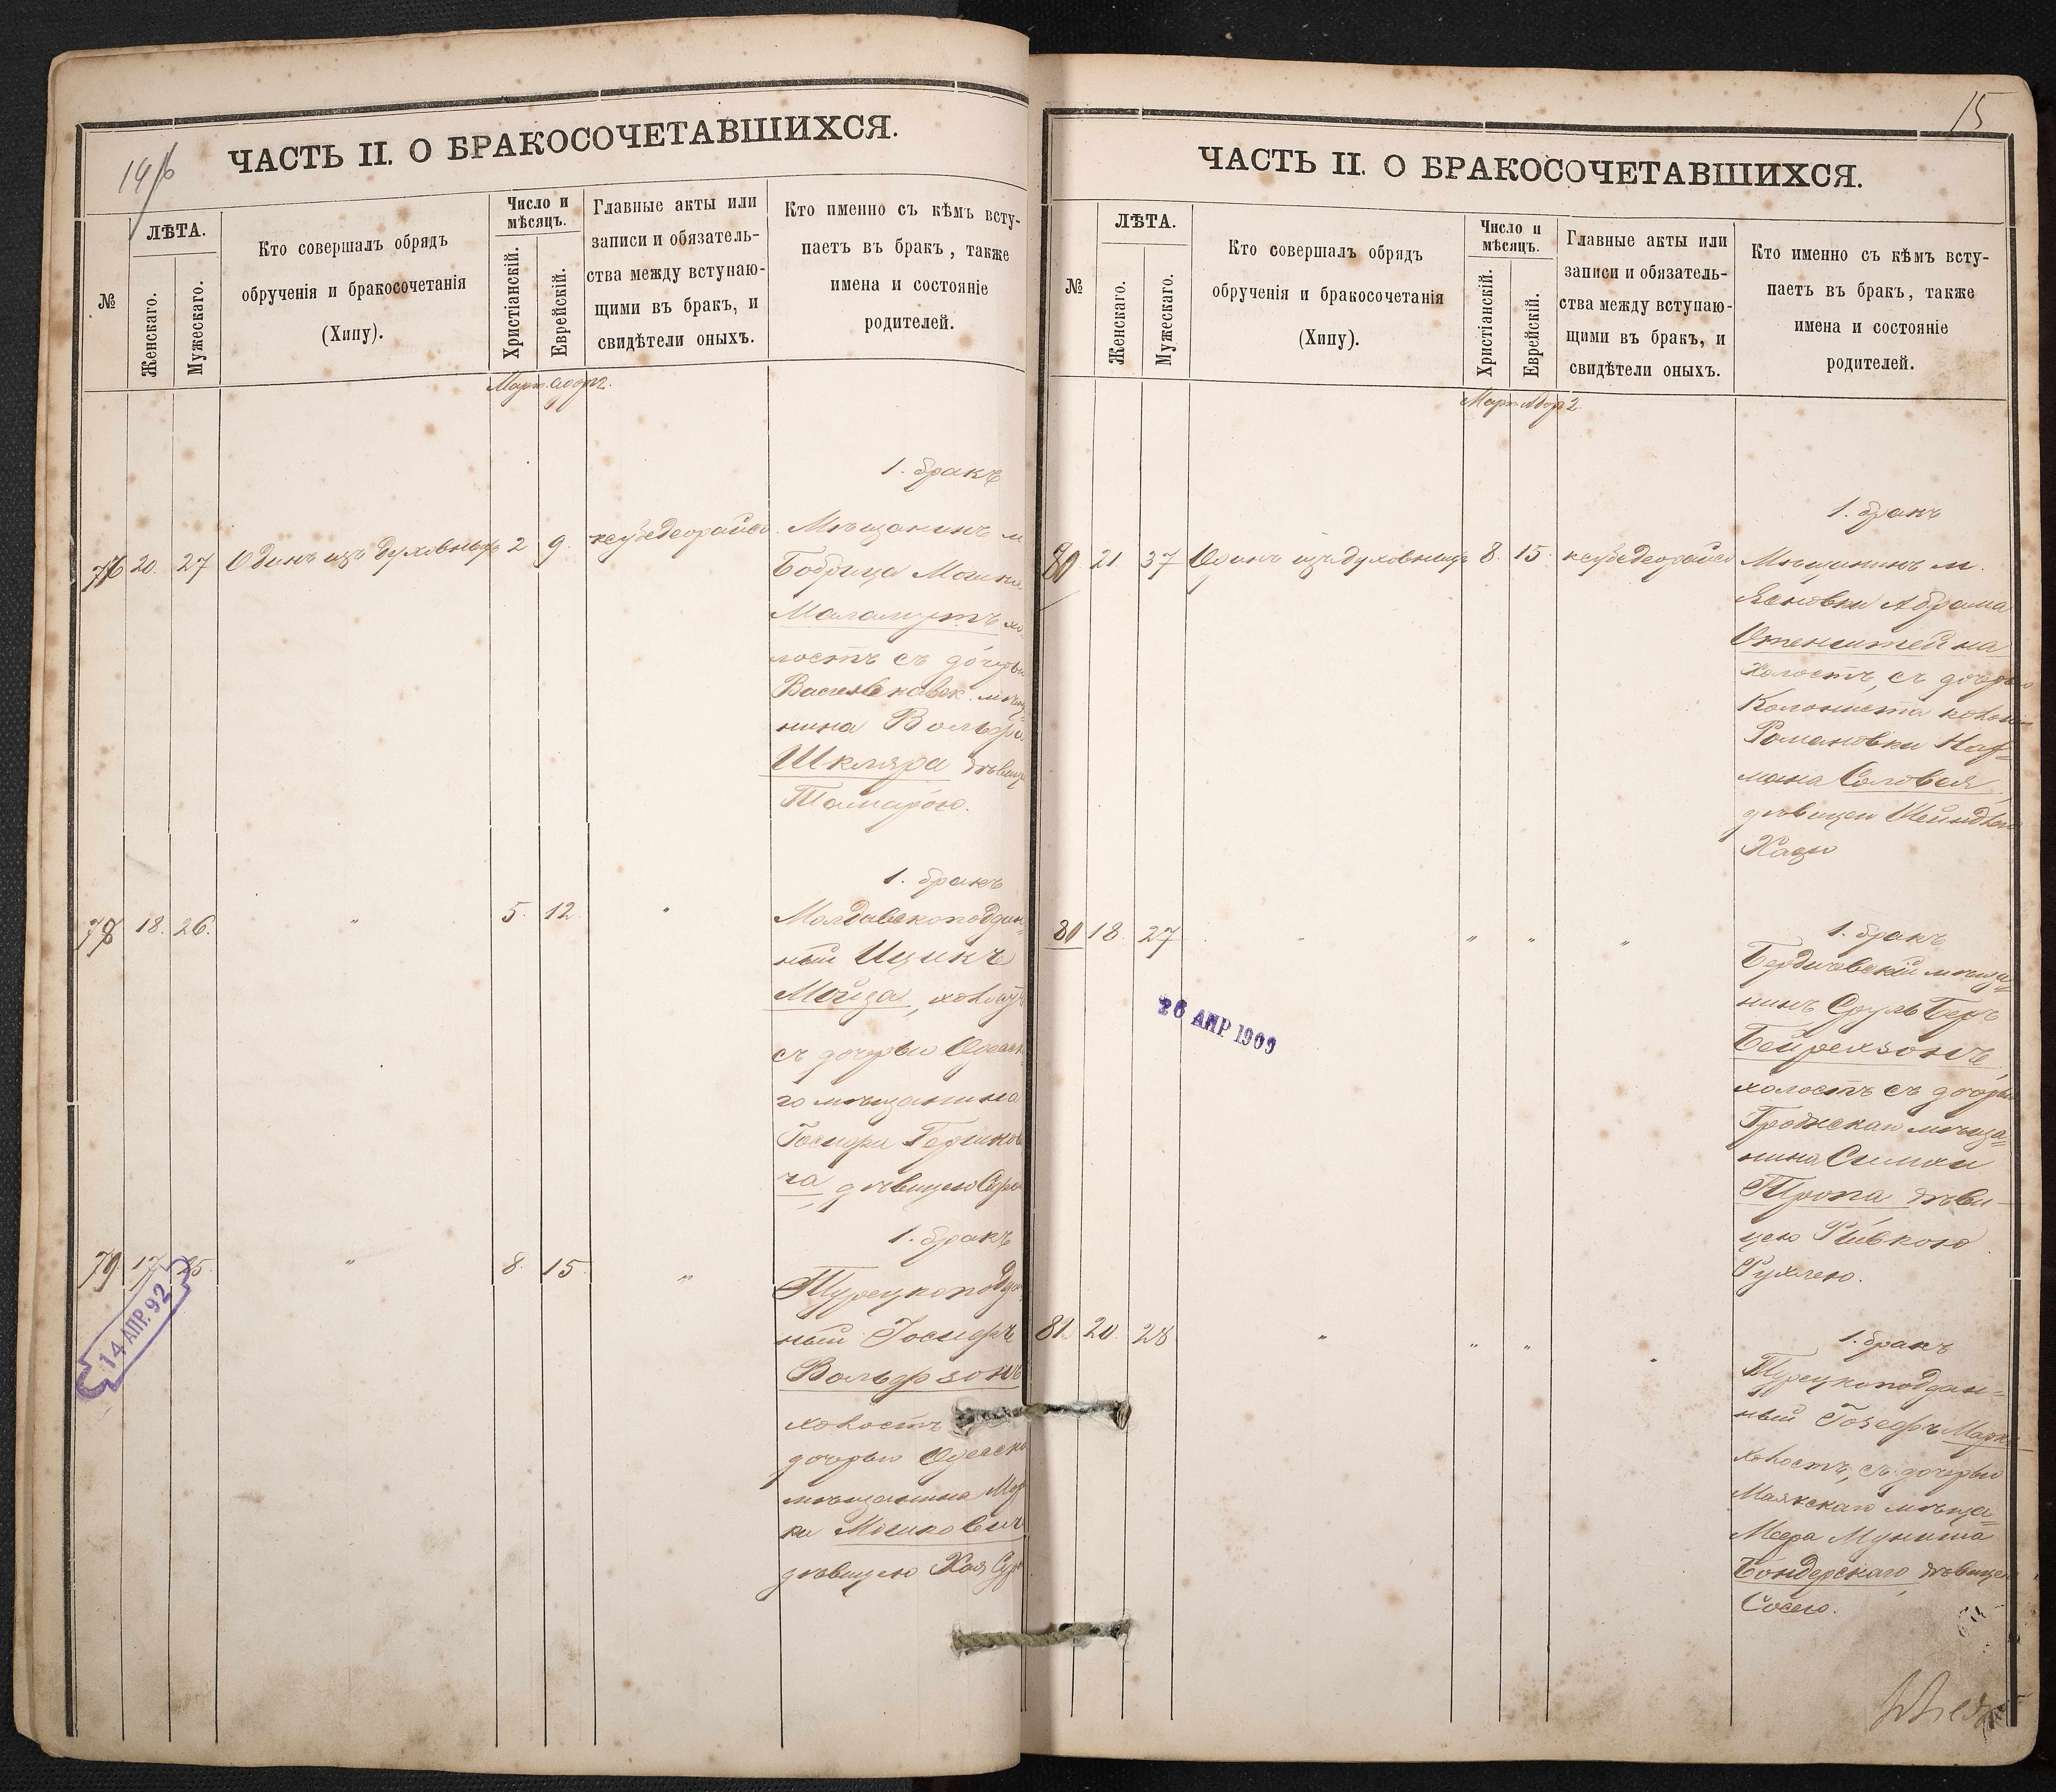 14/б
ЧАСТЬ II. О БРАКОСОЧЕТАВШИХСЯ.
№
ЛѢТА.
Женскаго.
Мужескаго.
Кто совершалъ обрядъ
обрученія и бракосочетанія
(Хипу).
Число и
мѣсяцъ.
Христіанскій.
Еврейскій.
Главные акты или
записи и обязатель-
ства между вступаю-
щими въ бракъ, и
свидѣтели оныхъ.
Кто именно съ кѣмъ всту-
паетъ въ бракъ, также
имена и состояніе
родителей.
Март. Адор 2.
1. бракъ
76 20. 27 Одинъ изъ духовныхъ 2 9. ксубедеорайсо Мѣщанинъ м
Бобринца Мошко
Маламутъ хо
лостъ съ дочерью
Васильковск. мѣща
нина Вольфа
Шкляра дѣвиц
Тамарою.
1. бракъ
78 18. 26. " 5. 12. " Молдавскоподдан=
ный Ицикъ
Мойза, холостъ
съ дочерью Одесск
го мѣщанина
Іосифа Гершкови
ча, дѣвицею Сура
1. бракъ
79. 17 25. " 8. 15. " Турецкоподдан
ный Іосифъ
Вольфзонъ
холостъ
дочерью Одесско
мѣщанина
ки Мошкович
дѣвицею Хая Сур
14 АПР. 92
15
ЧАСТЬ II. О БРАКОСОЧЕТАВШИХСЯ.
№
ЛѢТА.
Женскаго.
Мужескаго.
Кто совершалъ обрядъ
обрученія и бракосочетанія
(Хипу).
Число и
мѣсяцъ.
Христіанскій.
Еврейскій.
Главные акты или
записи и обязатель-
ства между вступаю-
щими въ бракъ, и
свидѣтели оныхъ.
Кто именно съ кѣмъ всту-
паетъ въ бракъ, также
имена и состояніе
родителей.
Март. Адор 2.
1. бракъ
80 21. 37 Одинъ изъ духовныхъ 8. 15. ксубедеорайсо Мѣщанинъ м.
Ясновки Абрама
холостъ, съ дочерью
Колониста колон
Романовки Наф=
мана Соловея,
дѣвицею Шейндлею
Хаею
1. бракъ
80 18. 27 " " " " Бердичевскій мѣща=
нинъ Сруль Беръ
Бейрехзонъ,
холостъ съ дочерью
Гродскаго мѣща=
нина Симхи
Тропа дѣви-
цею Ривкою
Рухлею.
26 АПР 1909
1. бракъ
81. 20. 28 " " " " Турецкоподдан=
ный Іозефъ Марко
холостъ, съ дочерью
Маякскаго мѣща=
Меера Муниша
Бондерскаго, дѣвицею
Сосею.